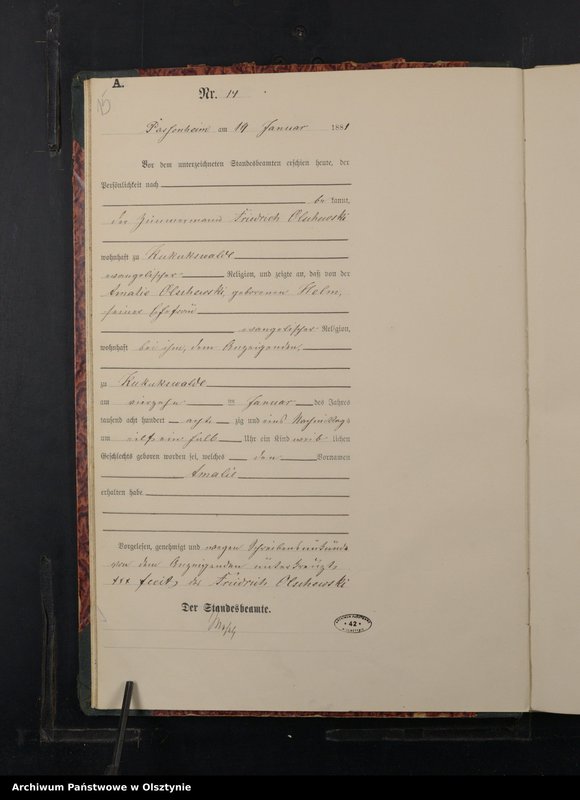 A.
Nr. 14
Passenheim am 19 Januar 1881
Vor dem unterzeichneten Standesbeamten erschien heute, der
Persönlichkeit nach
be kannt,
der Zimmermann Friedrich Olschewski
wohnhaft zu Kukukswalde
evangelischer Religion, und zeigte an, daß von der
Amalie Olschewski, geborenen Helm,
seiner Ehefrau
evangelischer Religion,
wohnhaft bei ihm, dem Anzeigenden,
zu Kukukswalde
am vierzehn ten Januar des Jahres
tausend acht hundert acht zig und eins Nachmittags
um elf ein halb Uhr ein Kind weib lichen
Geschlechts geboren worden sei, welches den Vornamen
Amalie
erhalten habe
Vorgelesen, genehmigt und wegen Schreibensunkunde
von dem Anzeigenden unterkreuzt
+++ fecit, der Friedrich Olschewski
Der Standesbeamte.
42
Archiwum Państwowe w Olsztynie